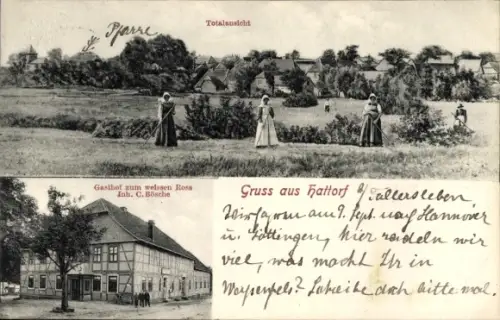 Pfarre
Totalansicht
Gasthof zum weissen Ross
Inh. C. Bösche
Gruss aus Hattorf b/Fallersleben.
Wir fahren am 9. Sept. nach Hannover
u. Göttingen, hier radeln wir
viel, was macht Ihr in
Schreibe doch bitte mal.